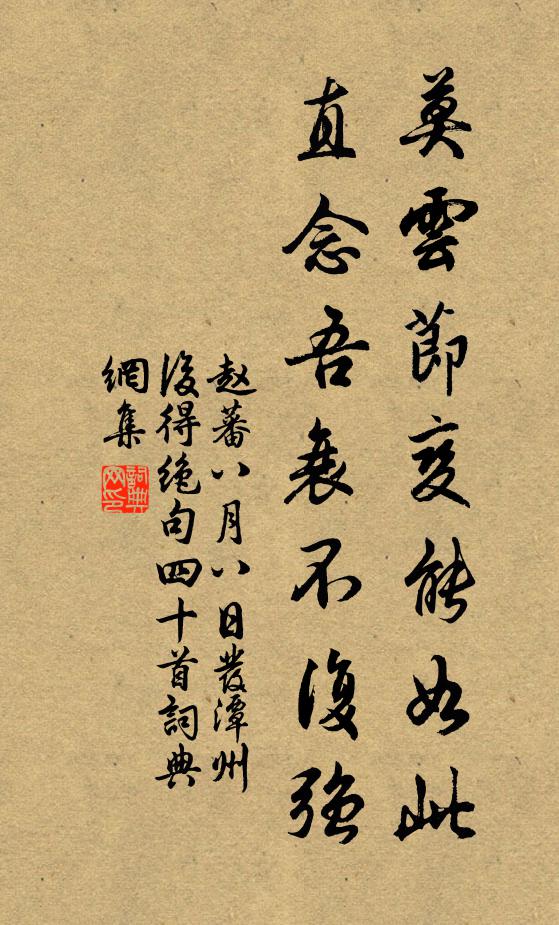 莫雲節變能如此
直念吾衰不復強
赵蕃八月八日發潭州
後得絶句四十首詞典
網集
詞典網印